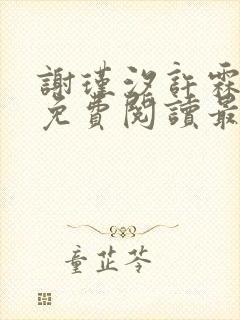 謝瑾汐許霖
免費閱讀最
童芷苓